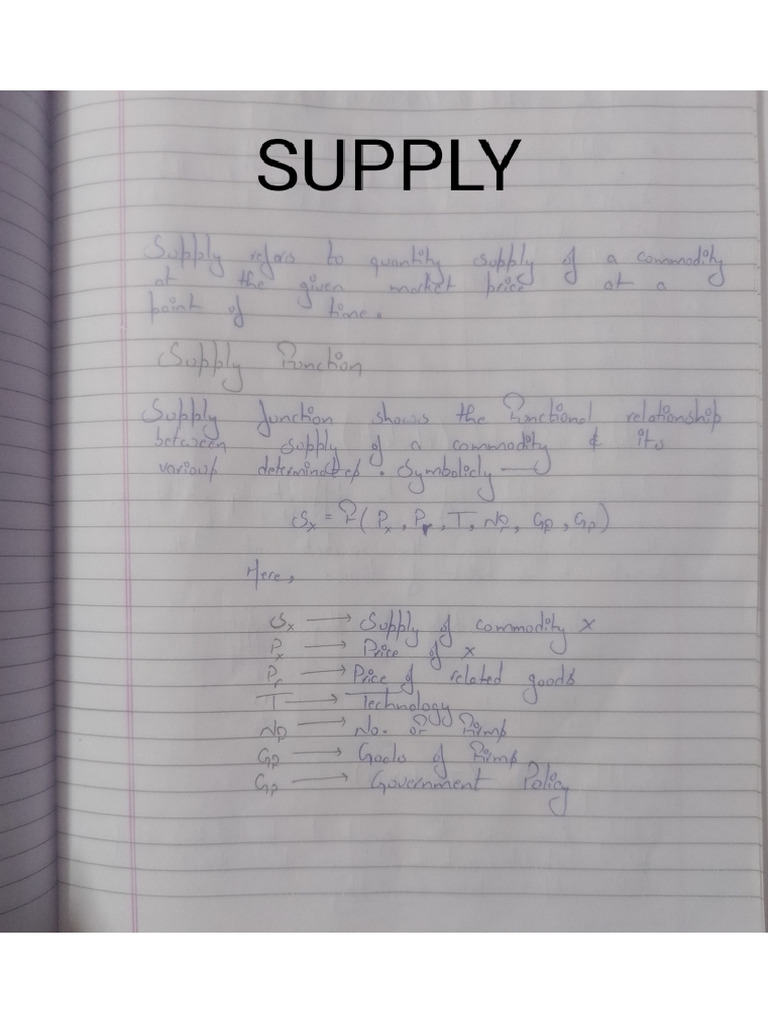 SUPPLY
Supply refers to quantity supply of a commodity
at the given market price at a
point of time.
Supply Function
Supply function shows the Functional relationship
between supply of a commodity & its
various . Symbolicly →
Sx = F( Px , Pr , T, NF, GF, GP)
Here,
Sx → Supply of commodity x
Px → Price of x
Pr → Price of related goods
T → Technology
NF → No. OF Firms
GF → Goals of Firms
GP → Government Policy